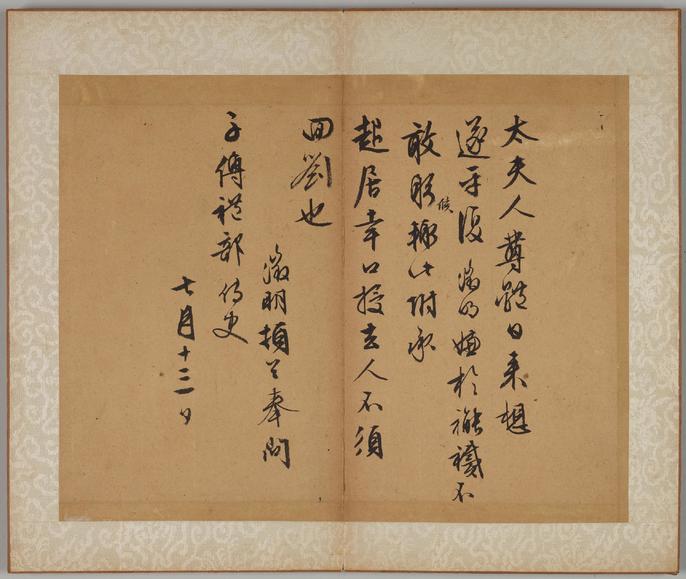 太夫人尊體日來想
遂平復徵明嫌於襶不
敢躬候此附承
起居幸口授去人不須
回劄也
徵明頓首奉問
子傳禮部侍史
七月十三日